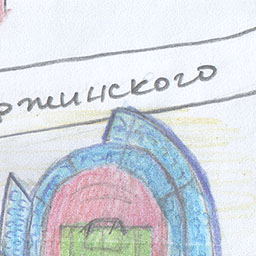 ржинского